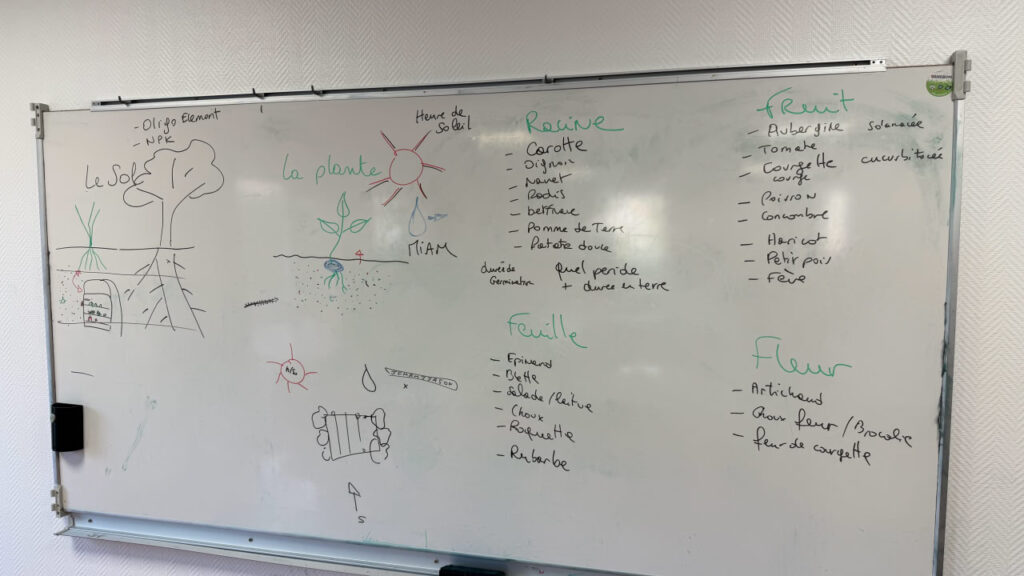 - Oligo Element
- NPK
Le Sol
La plante
Heure de
Soleil
MiAM
Racine
- Carotte
- Oignon
- Navet
- Radis
- betterave
- Pomme de Terre
- Patate douce
durée de
Germination
quel periode
+ durée en terre
Feuille
- Epinard
- Blette
- Salade/laitue
- Choux
- Roquette
- Rubarbe
FRuit
- Aubergine solanacée
- Tomate
- Courgette cucurbitacée
courge
- Poivron
- Concombre
- Haricot
- Petit pois
- Fève
Fleur
- Artichaud
- Chou fleur/Brocolie
- fleur de courgette
S